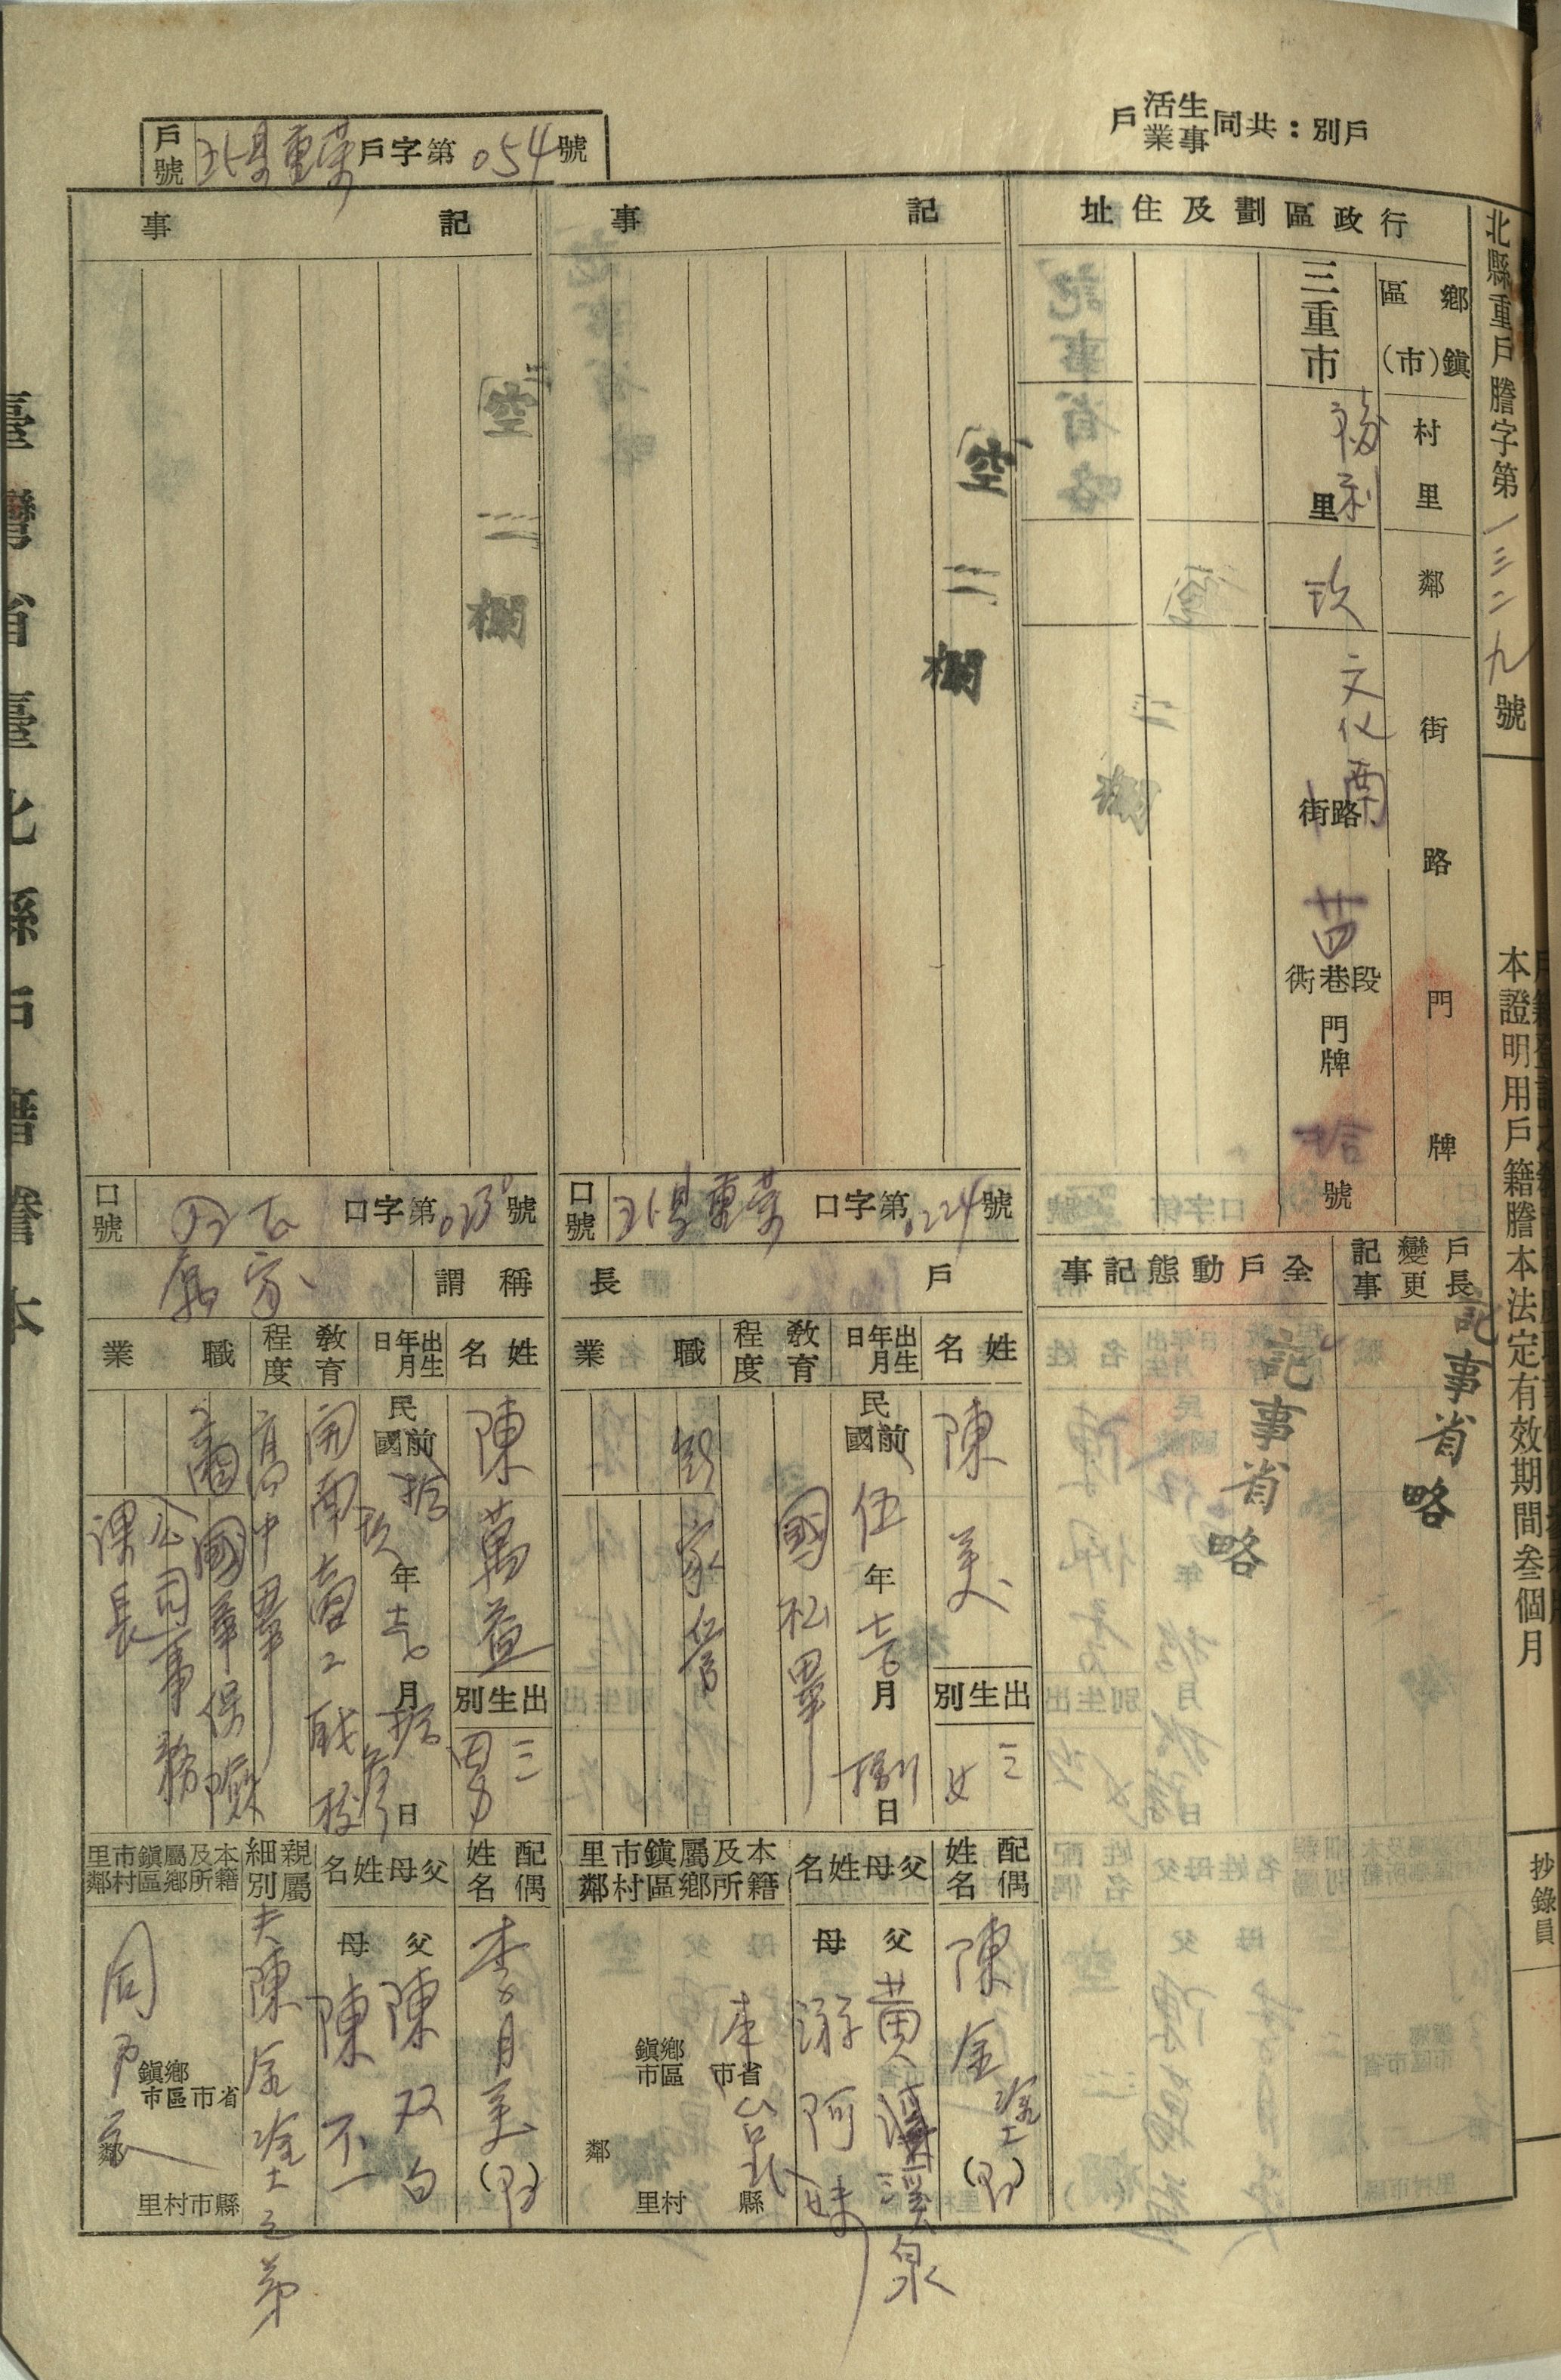 戶別：共同生活事業戶
戶號 北縣重榮戶字第054號
北縣重戶謄字第一三二九號
本證明用戶籍謄本法定有效期間叁個月
抄錄員
行政區劃及住址
鄉鎮區(市)
三重市
村里
福利里
鄰
玖
街路門牌
文化南街路
段巷衖
門牌
拾號
戶長變更記事
記事省略
全戶動態記事
記事省略
記事
空二欄
口號 北縣重榮口字第0224號
戶長
姓名
陳美
出生別
三女
出生年月日
民國前伍年
月
捌日
教育程度
國松畢
職業
家管
配偶姓名
陳金塗
父母姓名
父
黃溪泉
母
游阿妹
本籍及所屬鄉鎮區市村里鄰
本省市
台北縣
鄉鎮市區
村里
鄰
記事
空二欄
口號
口字第號
稱謂
寄
姓名
陳萬益
出生別
三男
出生年月日
民國前拾玖年
月拾叁日
教育程度
開南商工職校
高中畢
職業
商
國華保險
公司事務
課長
配偶姓名
李月美
父母姓名
父
陳双白
母
陳不一
親屬細別
夫陳金塗之弟
本籍及所屬鄉鎮區市村里鄰
同戶長
省市縣市
鄉鎮區市
村里
鄰
臺灣省臺北縣戶籍謄本